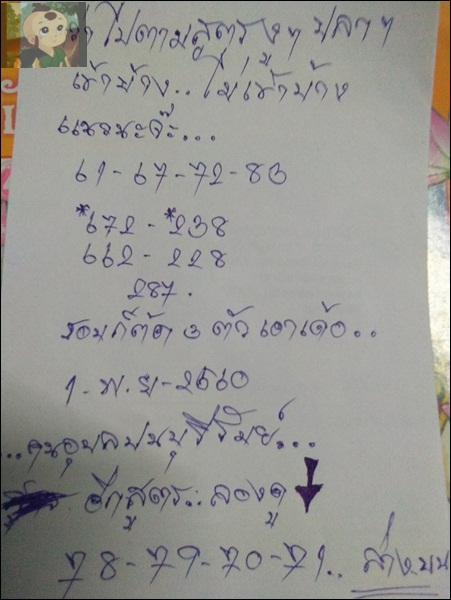 ไปตามสูตรงูๆ ปลาๆ
เข้าบ้าง.. ไม่เข้าบ้าง
เนอะจ๊ะ...
61-67-72-83
*672-*238
662-228
287.
ชอบก็ตัด 3 ตัวเอาเด้อ..
1-พ.ย-2560
..คนอุบลปนบุรีรัมย์...
อีกสูตร..ลองดู
78-79-70-71.. ล่างบน